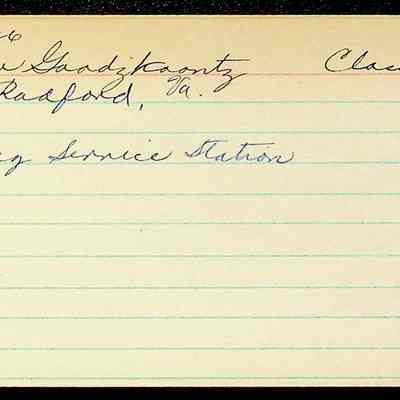 6
Goodykoontz Clas
Radford, Va.
Service Station